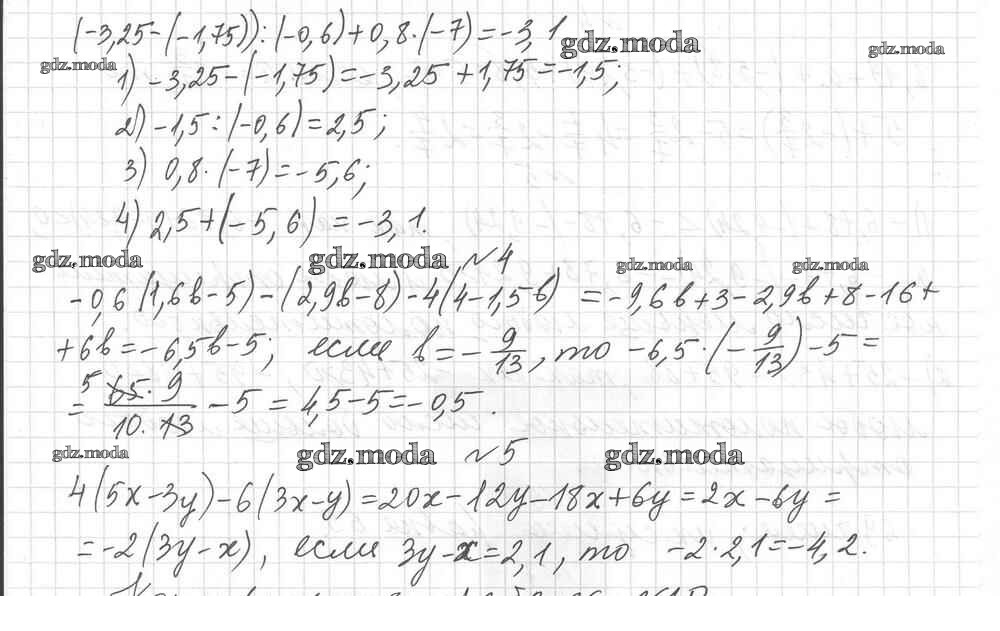 (-3,25-(-1,75)):(-0,6)+0,8·(-7)=-3,1
gdz.moda
gdz.moda
gdz.moda
1) -3,25-(-1,75)=-3,25+1,75=-1,5;
2) -1,5:(-0,6)=2,5;
3) 0,8·(-7)=-5,6;
4) 2,5+(-5,6)=-3,1.
gdz.moda
gdz.moda
№4
gdz.moda
gdz.moda
-0,6(1,6в-5)-(2,9в-8)-4(4-1,5в) =-9,6в+3-2,9в+8-16+
+6в=-6,5в-5; если в=-9/13, то -6,5·(-9/13)-5=
= 5 65·9/10·13 -5=4,5-5=-0,5.
gdz.moda
gdz.moda
№5
gdz.moda
4(5x-3y)-6(3x-y)=20x-12y-18x+6y=2x-6y=
=-2(3y-x), если 3y-x=2,1, то -2·2,1=-4,2.